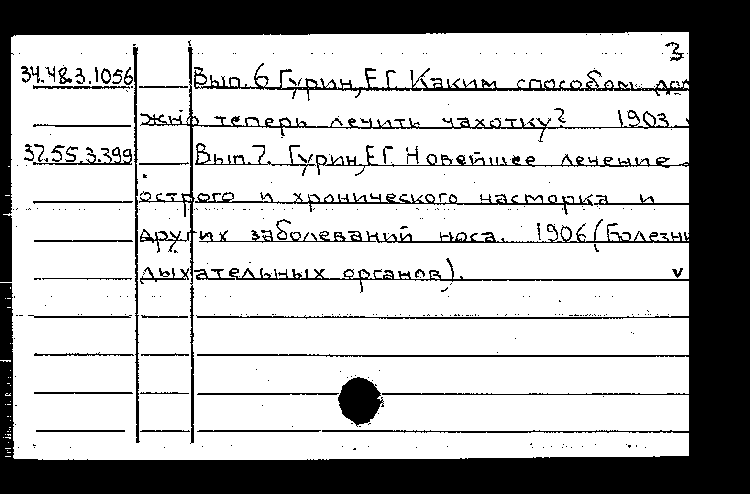 3
34.48.3.1056 Вып.6 Гурин, Е.Г. Каким способом дол
жно теперь лечить чахотку? 1903. v
37.55.3.399 Вып.7. Гурин, Е.Г. Новейшее лечение
острого и хронического насторка и
других заболеваний носа. 1906 (Болезни
дыхательных органов). v